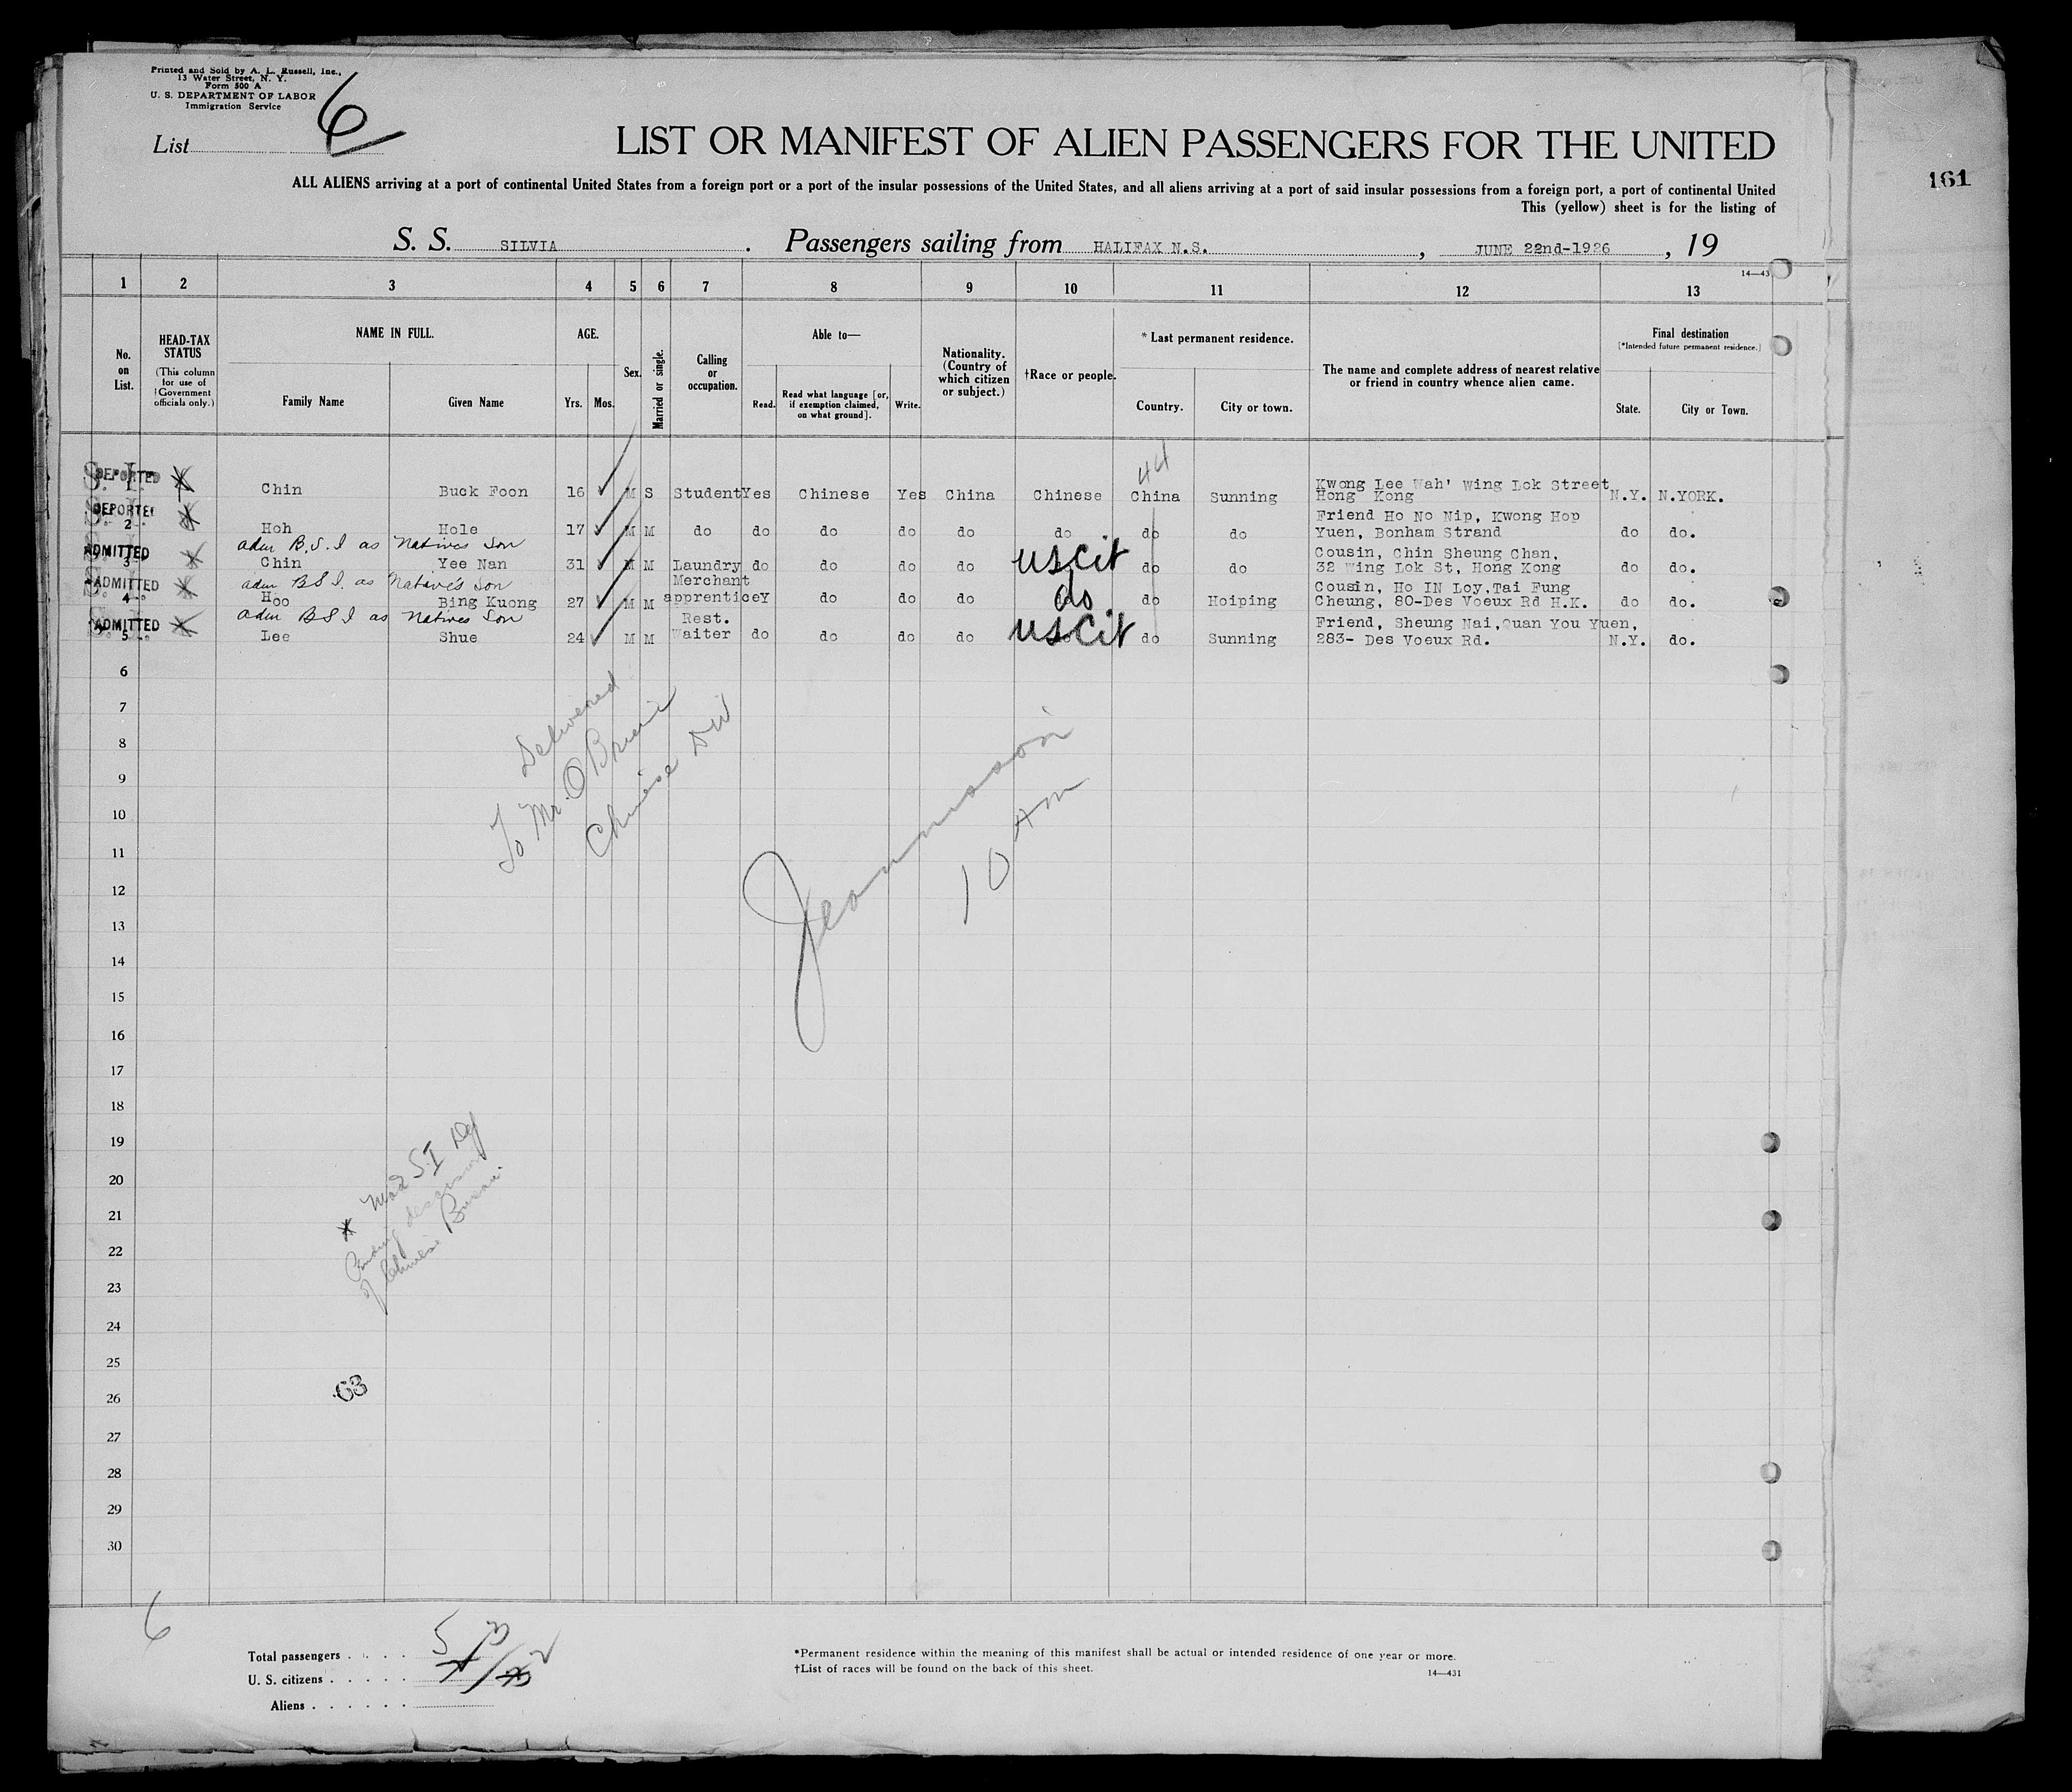 Printed and Sold by A. L. Russell, Inc.,
13 Water Street, N. Y.
Form 500 A
U. S. DEPARTMENT OF LABOR
Immigration Service
List 6
LIST OR MANIFEST OF ALIEN PASSENGERS FOR THE UNITED
161
ALL ALIENS arriving at a port of continental United States from a foreign port or a port of the insular possessions of the United States, and all aliens arriving at a port of said insular possessions from a foreign port, a port of continental United
This (yellow) sheet is for the listing of
S. S. SILVIA . Passengers sailing from HALIFAX N.S. , JUNE 22nd-1926 , 19
14—43
1 2 3 4 5 6 7 8 9 10 11 12 13
No. on List.
HEAD-TAX STATUS
(This column for use of Government officials only.)
NAME IN FULL.
Family Name Given Name
AGE.
Yrs. Mos.
Sex.
Married or single.
Calling or occupation.
Able to—
Read. Read what language [or, if exemption claimed, on what ground]. Write.
Nationality. (Country of which citizen or subject.)
†Race or people.
* Last permanent residence.
Country. City or town.
The name and complete address of nearest relative or friend in country whence alien came.
Final destination
[*Intended future permanent residence.]
State. City or Town.
44
S. I. DEPORTED Chin Buck Foon 16 M S Student Yes Chinese Yes China Chinese China Sunning Kwong Lee Wah' Wing Lok Street, Hong Kong N.Y. N.YORK.
S. I. DEPORTED 2 Hoh Hole 17 M M do do do do do do do do Friend Ho No Nip, Kwong Hop Yuen, Bonham Strand do do.
adm B.S.I as Natives Son
ADMITTED 3 Chin Yee Nan 31 M M Laundry do do do do US cit do do Cousin, Chin Sheung Chan, 32 Wing Lok St, Hong Kong do do.
adm BSI. as Native's Son
ADMITTED 4 Hoo Bing Kuong 27 M M Merchant apprentice Y do do do do do Hoiping Cousin, Ho IN Loy, Tai Fung Cheung, 80-Des Voeux Rd H.K. do do.
adm BSI as Natives Son
ADMITTED 5 Lee Shue 24 M M Rest. Waiter do do do do US Cit do Sunning Friend, Sheung Nai, Quan You Yuen, 283- Des Voeux Rd. N.Y. do.
6
7
8
9
10
11
12
13
14
15
16
17
18
19
20
21
22
23
24
25
26
27
28
29
30
Delivered
To Mr. O'Brien
Chinese
10 AM
S.I
Pending decision
of Chinese
63
6
Total passengers 5
U. S. citizens
Aliens
*Permanent residence within the meaning of this manifest shall be actual or intended residence of one year or more.
†List of races will be found on the back of this sheet.
14—431